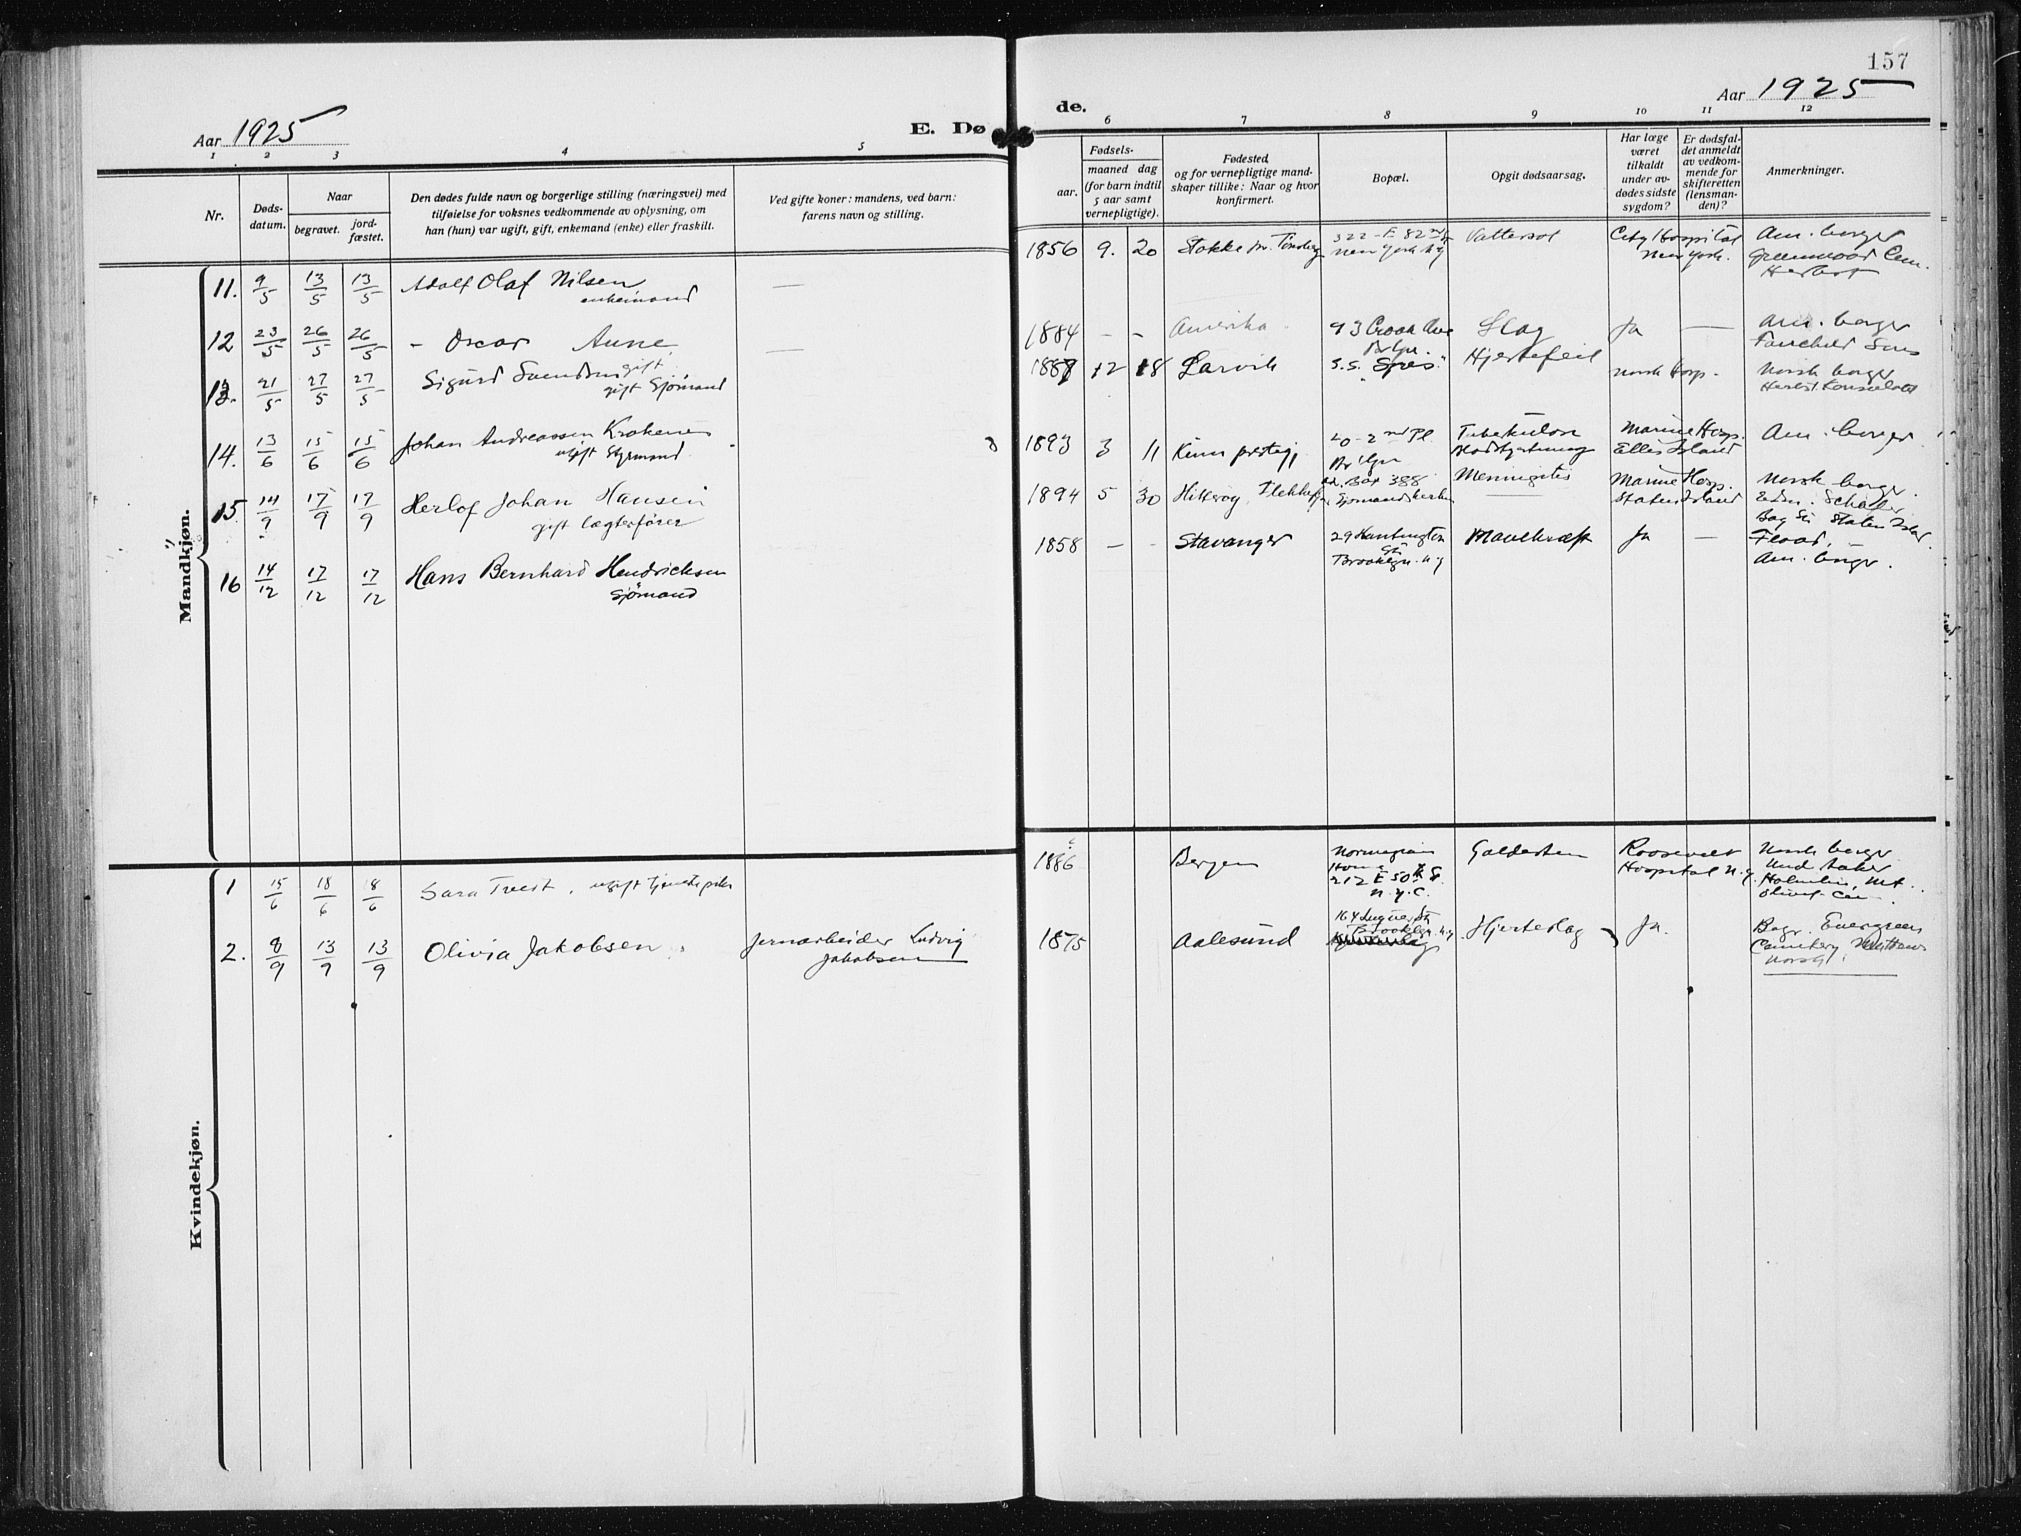 157
Aar 1925
E. Dø
de.
Aar 1925
1 2 3 4 5
6 7 8 9 10 11 12
Nr.
Døds-
datum.
Naar
begravet.
jord-
fæstet.
Den dødes fulde navn og borgerlige stilling (næringsvei) med
tilføielse for voksnes vedkommende av oplysning, om
han (hun) var ugift, gift, enkemand (enke) eller fraskilt.
Ved gifte koner: mandens, ved barn:
farens navn og stilling.
Fødsels-
aar.
maaned dag
(for barn indtil
5 aar samt
vernepligtige).
Fødested,
og for vernepligtige mand-
skaper tillike: Naar og hvor
konfirmert.
Bopæl.
Opgit dødsaarsag.
Har læge
været
tilkaldt
under av-
dødes sidste
sygdom?
Er dødsfal-
det anmeldt
av vedkom-
mende for
skifteretten
(lensman-
den)?
Anmerkninger.
Mandkjøn.
11. 9/5 13/5 13/5 Adolf Olaf Nilsen —
enkemand
12 23/5 26/5 26/5 - Oscar Aune —
gift
13. 21/5 27/5 27/5 Sigurd Svendsen
gift Sjømand
14. 13/6 15/6 15/6 Johan Andreassen Krokenes
ugift Styrmand
15 14/9 17/9 17/9 Herlof Johan Hansen
gift
16 14/12 17/12 17/12 Hans Bernhard Hendricksen
Sjømand
Kvindekjøn.
1 15/6 18/6 18/6 Sara Tvedt, ugift
2. 8/9 13/9 13/9 Olivia Jakobsen Jernarbeider Ludvig
Jakobsen
1856 9. 20 Stokke pr. Tønsberg 322-E 82nd St Vattersot City Hospital Am. borger
New York N.Y. New York. Greenwood Cem.
1884 - - Amerika 93 Slag Ja — Am. borger
Brlyn. Fairchild Sons
1887 12 18 Larvik S.S. "Spes" Hjertefeil Norsk Hosp. Norsk borger
1893 3 11 Kinn prestegj 40-2nd Pl. Tuberkulose Marine Hosp. Am. borger
Br'lyn Ellis Island
1894 5 30 Hitterøy, Box 388 Meningitis Marine Hosp. Norsk borger.
Staten Island Edw. Schaefer
Bay St Staten Isl.
1858 - - Stavanger 29 Huntington Mavekræft Ja —
St
Brooklyn. N.Y Am. borger.
1886 Bergen Norwegian Galdesten Roosevelt Norsk borger
Home Hospital N.Y.
212 E 50th St.
N.Y.C.
1875 Aalesund 164 Hjerteslag Ja. Evergreen
Brooklyn N.Y Cemetery
Norsk